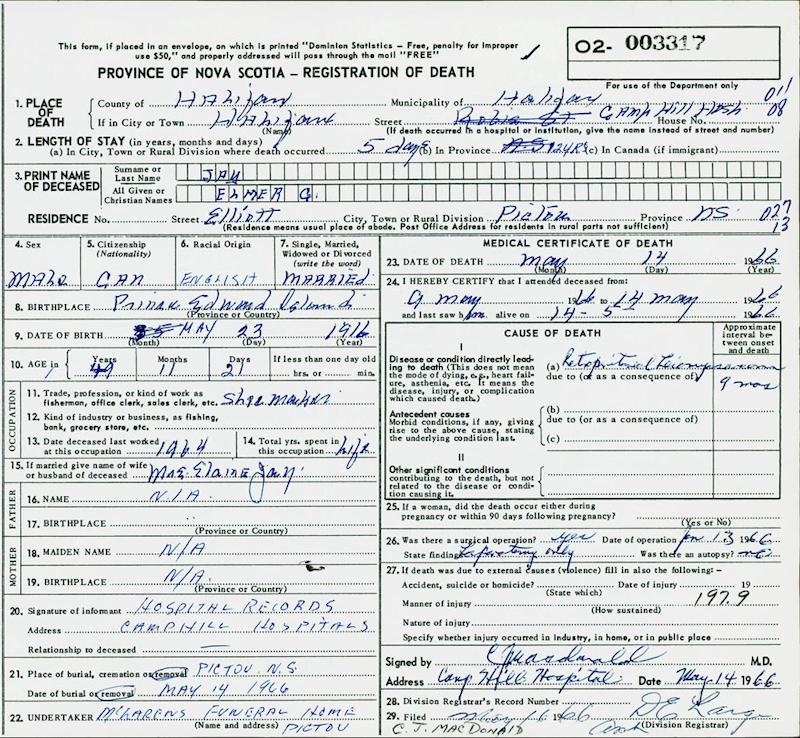 This form, if placed in an envelope, on which is printed "Dominion Statistics — Free, penalty for improper
use $50," and properly addressed will pass through the mail "FREE"
O2- 003317
PROVINCE OF NOVA SCOTIA — REGISTRATION OF DEATH
For use of the Department only
1. PLACE OF DEATH County of Halifax Municipality of Halifax 011
If in City or Town Halifax Street Robie St Camp Hill Hosp. House No. 08
(Name) (If death occurred in a hospital or institution, give the name instead of street and number)
2. LENGTH OF STAY (in years, months and days)
(a) In City, Town or Rural Division where death occurred 5 days (b) In Province (c) In Canada (if immigrant)
3. PRINT NAME OF DECEASED
Surname or Last Name JAY
All Given or Christian Names ELMER G.
RESIDENCE No. Street Elliott City, Town or Rural Division Pictou Province NS. 027
(Residence means usual place of abode. Post Office Address for residents in rural parts not sufficient) 13
4. Sex 5. Citizenship (Nationality) 6. Racial Origin 7. Single, Married, Widowed or Divorced (write the word)
MALE CAN ENGLISH MARRIED
8. BIRTHPLACE Prince Edward Island
(Province or Country)
9. DATE OF BIRTH MAY 23 1916
(Month) (Day) (Year)
10. AGE in Years Months Days If less than one day old
49 11 21 hrs. or min.
OCCUPATION
11. Trade, profession, or kind of work as fisherman, office clerk, sales clerk, etc. Shoe maker
12. Kind of industry or business, as fishing, bank, grocery store, etc.
13. Date deceased last worked at this occupation 1964 14. Total yrs. spent in this occupation life
15. If married give name of wife or husband of deceased Mrs. Elaine Jay
FATHER
16. NAME N.I.A.
17. BIRTHPLACE
(Province or Country)
MOTHER
18. MAIDEN NAME N/A
19. BIRTHPLACE N/A.
(Province or Country)
20. Signature of informant HOSPITAL RECORDS
Address CAMPHILL HOSPITALS
Relationship to deceased —
21. Place of burial, cremation or removal PICTOU N.S.
Date of burial or removal MAY 14 1966
22. UNDERTAKER McLARENS FUNERAL HOME
(Name and address) PICTOU
MEDICAL CERTIFICATE OF DEATH
23. DATE OF DEATH May 14 1966
(Month) (Day) (Year)
24. I HEREBY CERTIFY that I attended deceased from:
9 May 1966 to 14 May 1966
and last saw him alive on 14 - 5 - 1966
CAUSE OF DEATH
Approximate interval between onset and death
I
Disease or condition directly leading to death (This does not mean the mode of dying, e.g., heart failure, asthenia, etc. It means the disease, injury, or complication which caused death.)
(a)
due to (or as a consequence of) 9 mos
Antecedent causes
Morbid conditions, if any, giving rise to the above cause, stating the underlying condition last.
(b)
due to (or as a consequence of)
(c)
II
Other significant conditions
contributing to the death, but not related to the disease or condition causing it.
25. If a woman, did the death occur either during
pregnancy or within 90 days following pregnancy?
(Yes or No)
26. Was there a surgical operation? yes Date of operation Jan 13 1966
State findings Laparotomy only Was there an autopsy? no
27. If death was due to external causes (violence) fill in also the following:—
Accident, suicide or homicide? Date of injury 19
(State which)
Manner of injury 197.9
(How sustained)
Nature of injury
Specify whether injury occurred in industry, in home, or in public place
Signed by C J Macdonald M.D.
Address Camp Hill Hospital Date May 14 1966
28. Division Registrar's Record Number
29. Filed May 16 1966
(Division Registrar)
C. J. MACDONALD